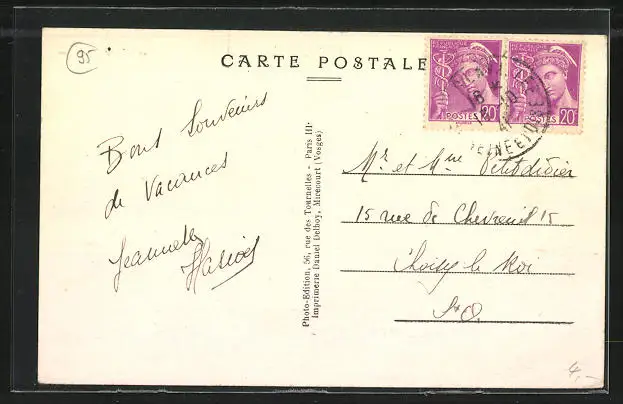 95
CARTE POSTALE
POSTES 20c
POSTES 20c
Bons Souvenirs
de Vacances
Jeannette
Photo-Edition, 56, rue des Tournelles - Paris III·
Imprimerie Daniel Delboy, Mirecourt (Vosges)
Mr et Mme Petitdidier
15 rue de Chevreuil 15
Choisy le Roi
S & O.
4,-